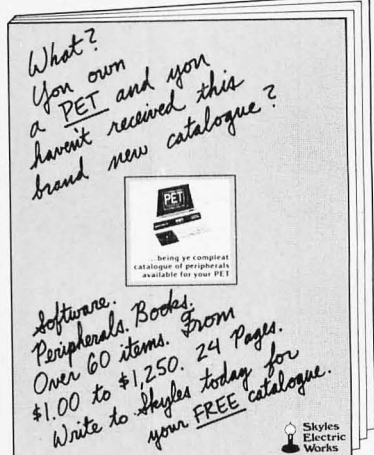 What?
You own
a PET and you
haven't received this
brand new catalogue?
PET
...being ye compleat
catalogue of peripherals
available for your PET
Software.
Peripherals. Books.
Over 60 items. From
$1.00 to $1,250. 24 Pages.
Write to Skyles today for
your FREE catalogue.
Skyles
Electric
Works